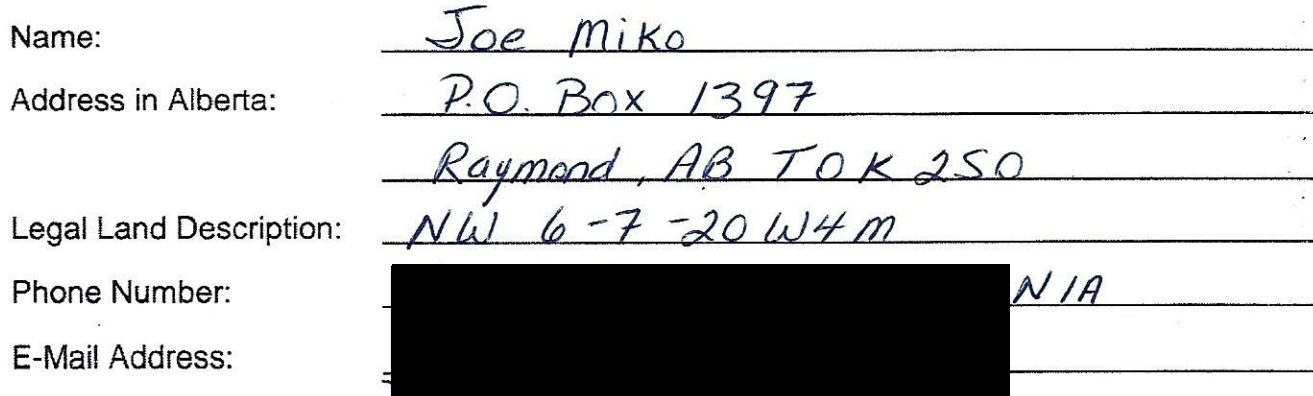 Name: Joe Miko
Address in Alberta: P.O. Box 1397
Raymond, AB T0K 2S0
Legal Land Description: NW 6-7-20 W4M
Phone Number: N/A
E-Mail Address: